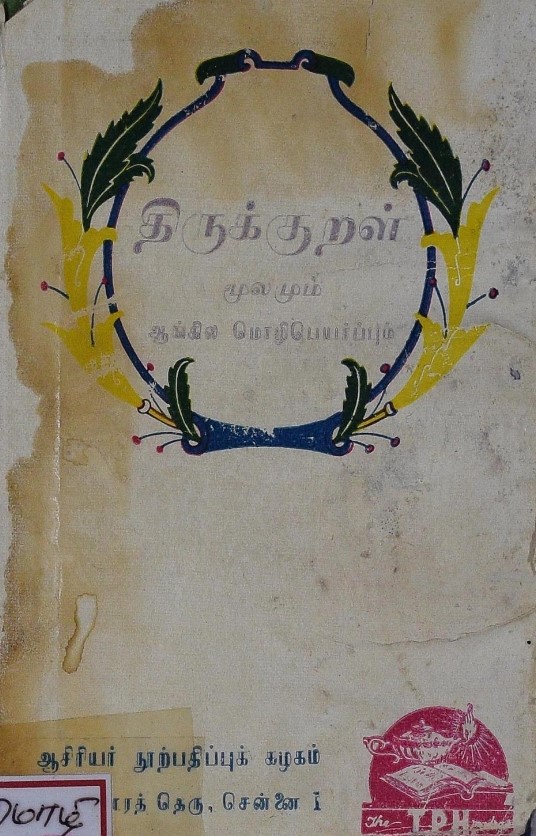 திருக்குறள்
மூலமும்
ஆங்கில மொழிபெயர்ப்பும்
ஆசிரியர் நூற்பதிப்புக் கழகம்
தெரு, சென்னை 1
The T.P.H